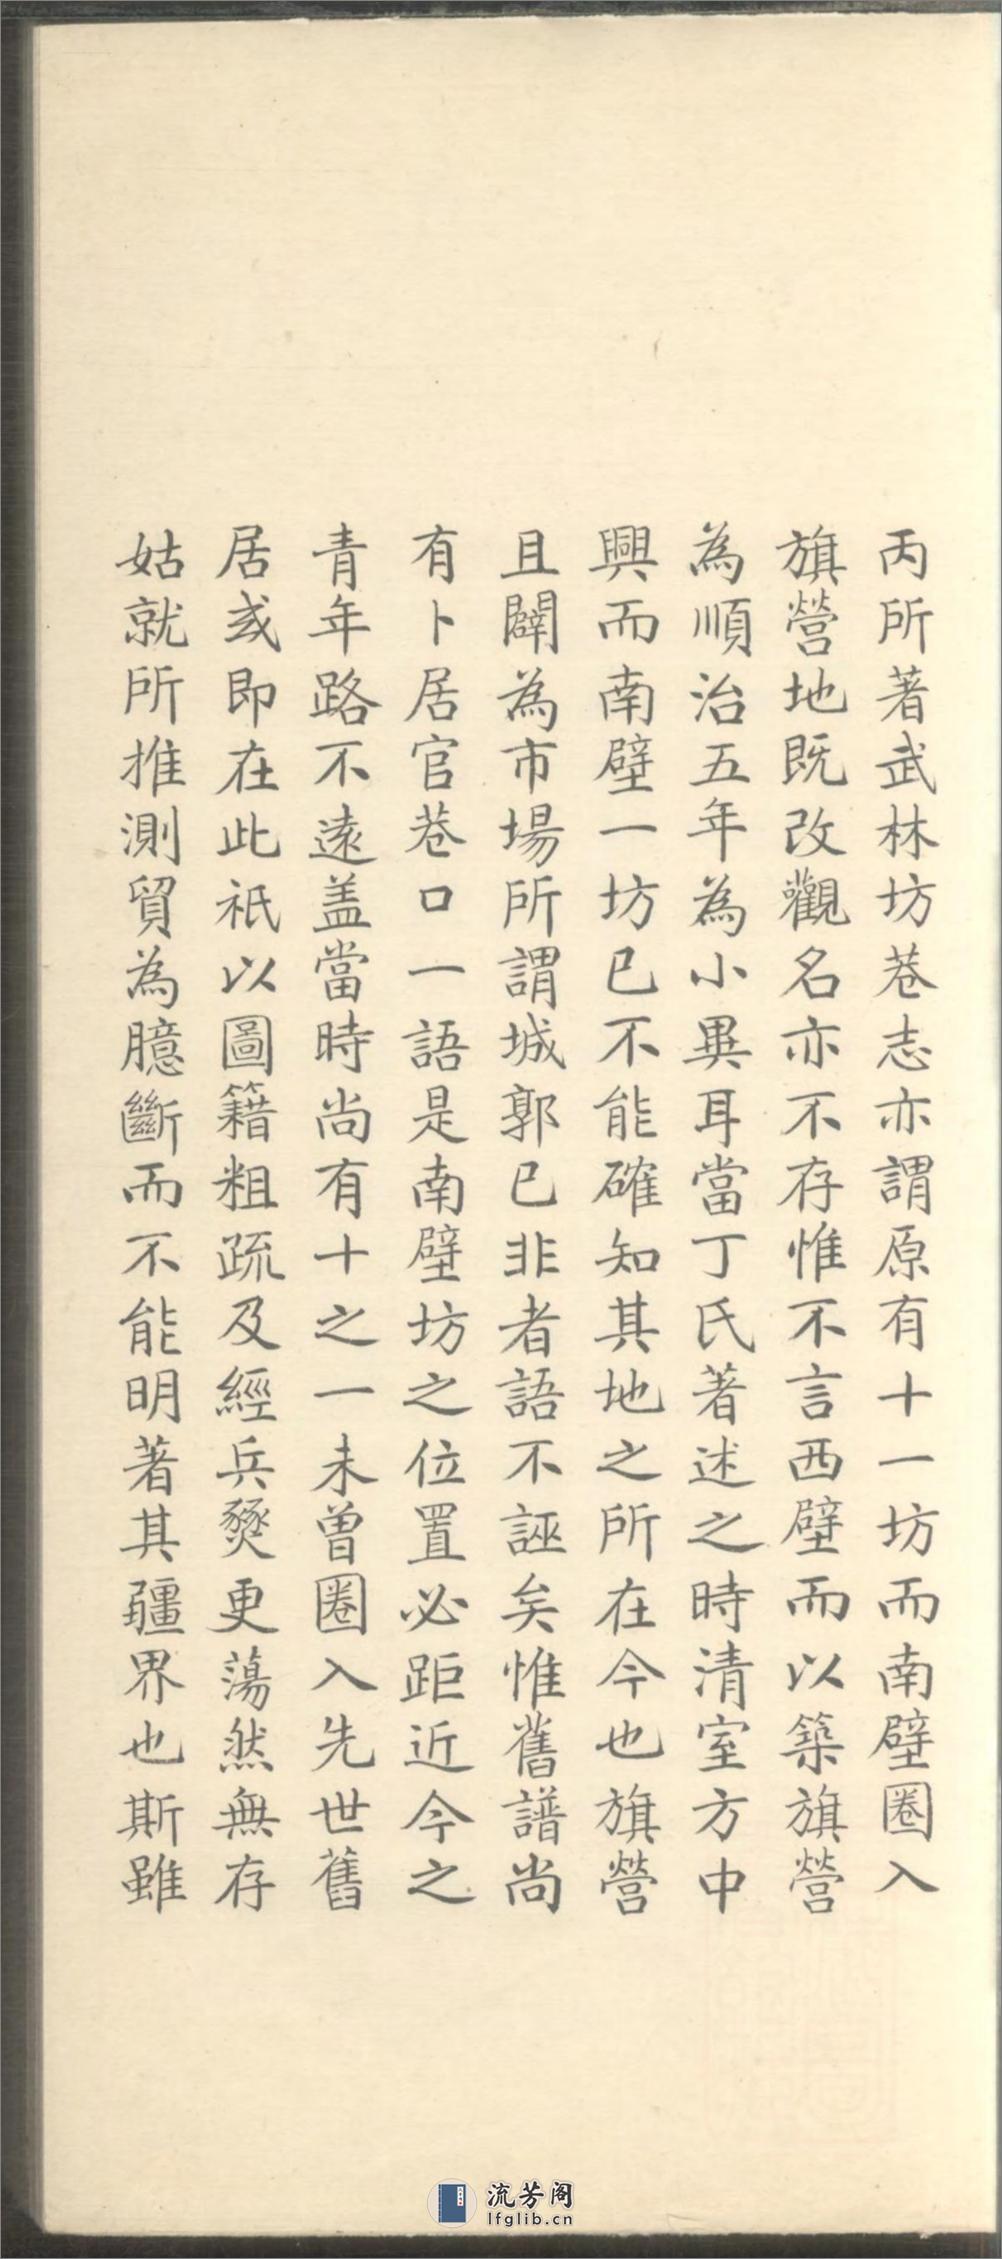 丙所著武林坊巷志亦謂原有十一坊而南壁圈入
旗營地既改觀名亦不存惟不言西壁而以築旗營
為順治五年為小異耳當丁氏著述之時清室方中
興而南壁一坊已不能確知其地之所在今也旗營
且闢為市場所謂城郭已非者語不誣矣惟舊譜尚
有卜居官巷口一語是南壁坊之位置必距近今之
青年路不遠盖當時尚有十之一未曾圈入先世舊
居或即在此祇以圖籍粗疏及經兵燹更蕩然無存
姑就所推測貿為臆斷而不能明著其疆界也斯雖
流芳阁
lfglib.cn